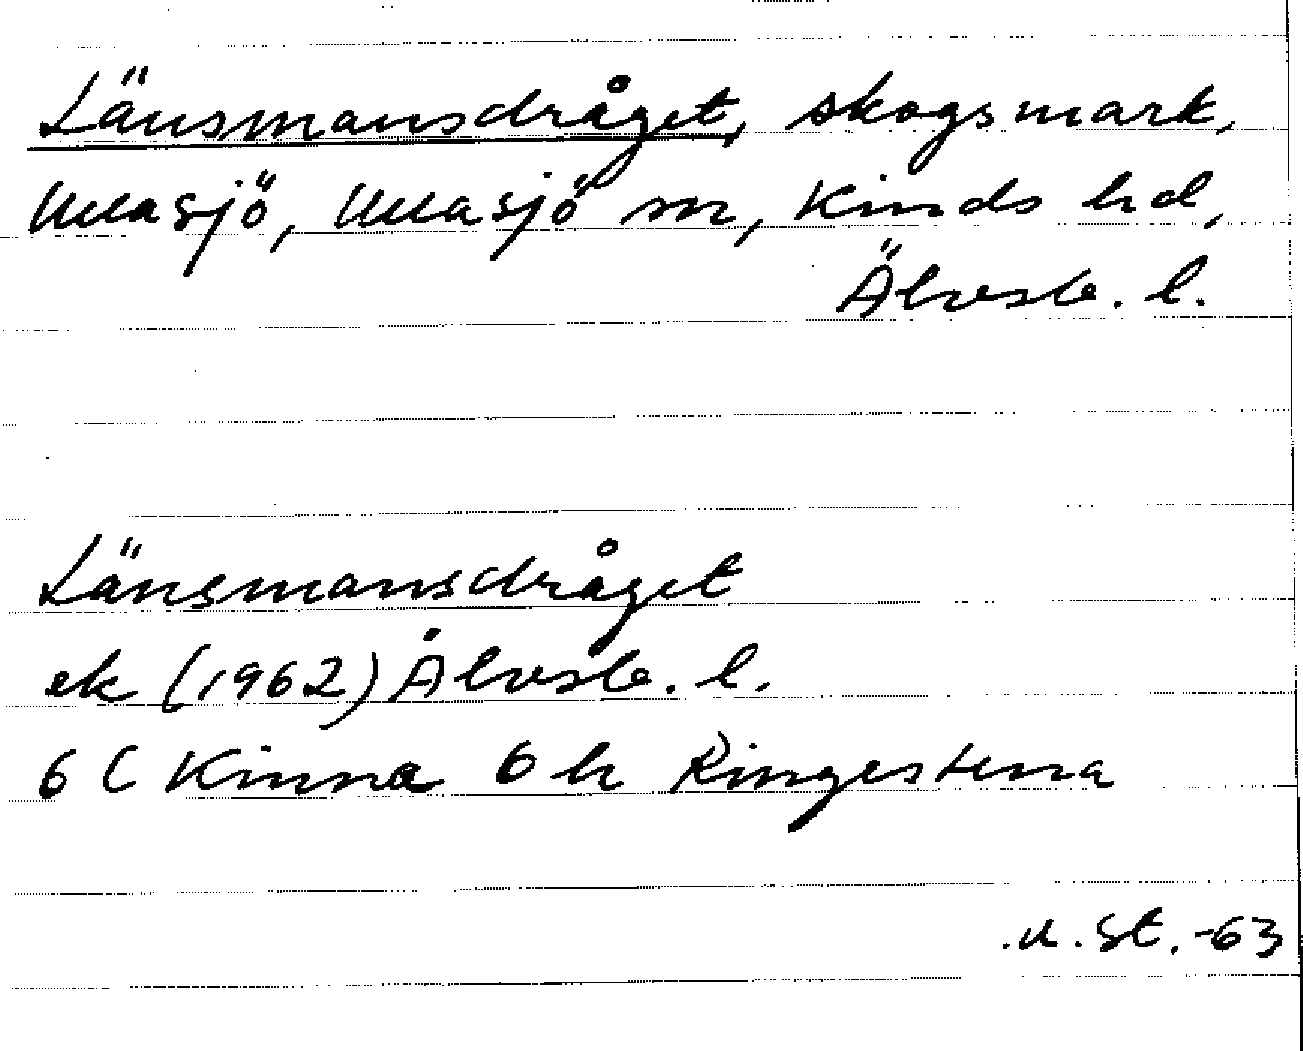 Länsmansdråget, skogsmark,
Ullasjö, Ullasjö sn, Kinds hd,
Älvsb. l.
Länsmansdråget
ek (1962) Älvsb. l.
6 C Kinna 6 h Ringestena
.u. St. -63